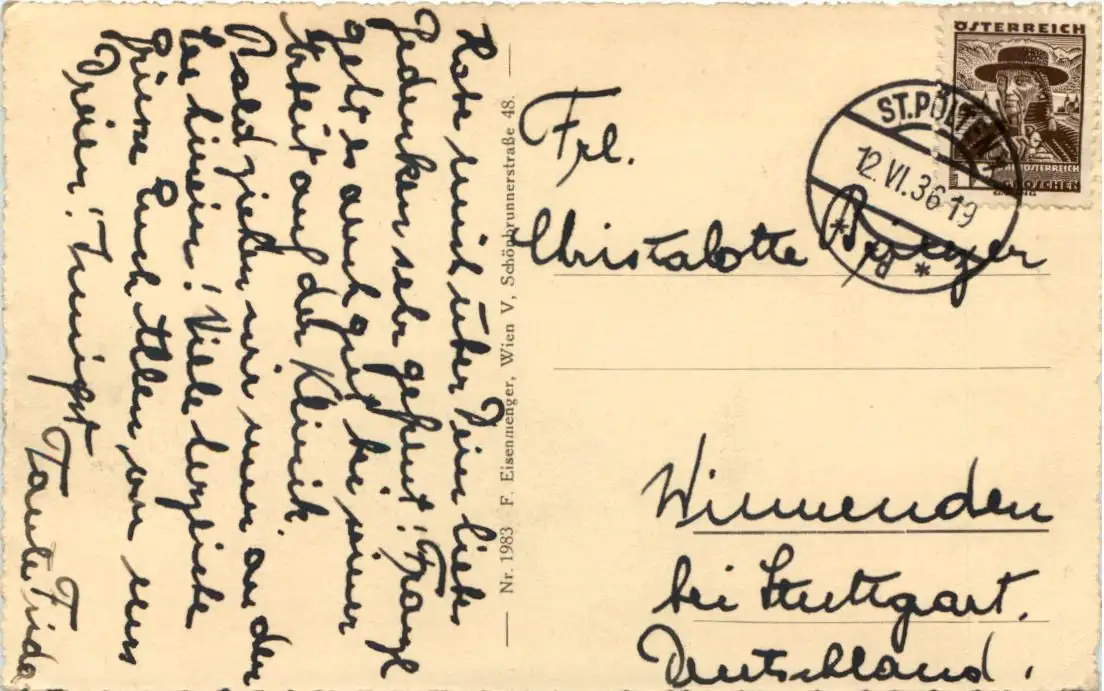 Habe mich über Dein liebes
Gedenken sehr gefreut! Franzl
geht es auch gut bei seiner
Arbeit auf der Klinik.
Bald ziehen wir nun an den
See hinein! Viele herzliche
Grüsse Euch Allen, von uns
Dreien! Innigst
Tante Frida
Nr. 1983 F. Eisenmenger, Wien V, Schönbrunnerstraße 48.
ÖSTERREICH
GROSCHEN
ST. PÖLTEN
12.VI.36-19
Frl.
Christalotte
Winnenden
bei Stuttgart.
Deutschland.